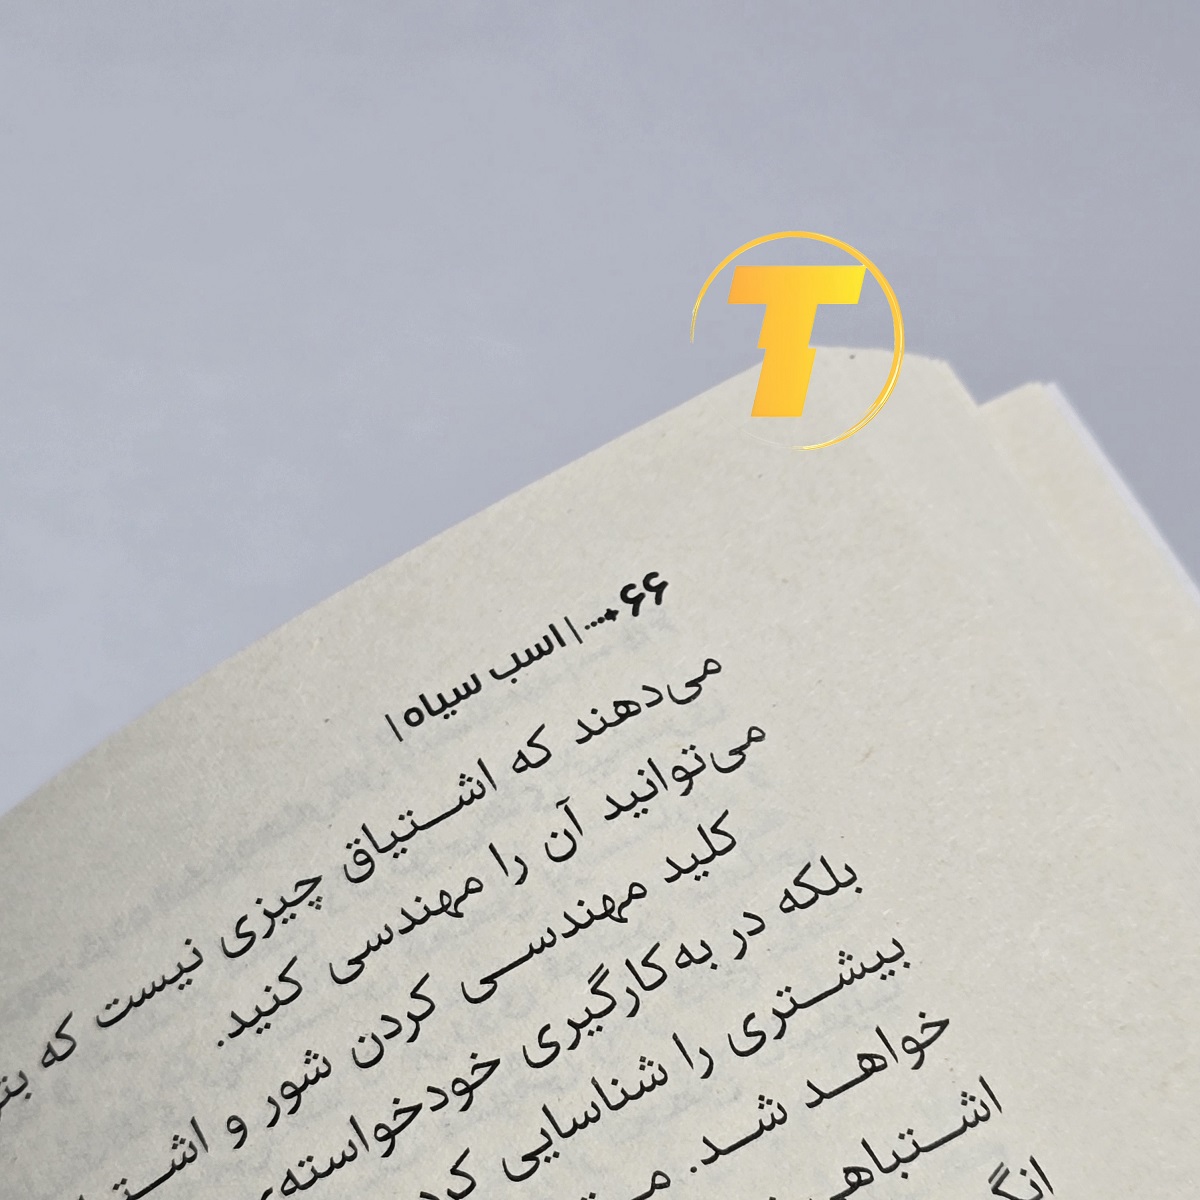 T
۶۶ | اسب سیاه |
می‌دهند که اشتیاق چیزی نیست که
می‌توانید آن را مهندسی کنید.
کلید مهندسی کردن شور و
بلکه در به‌کارگیری خودخواسته‌ی
بیشتری را شناسایی
خواهد شد.